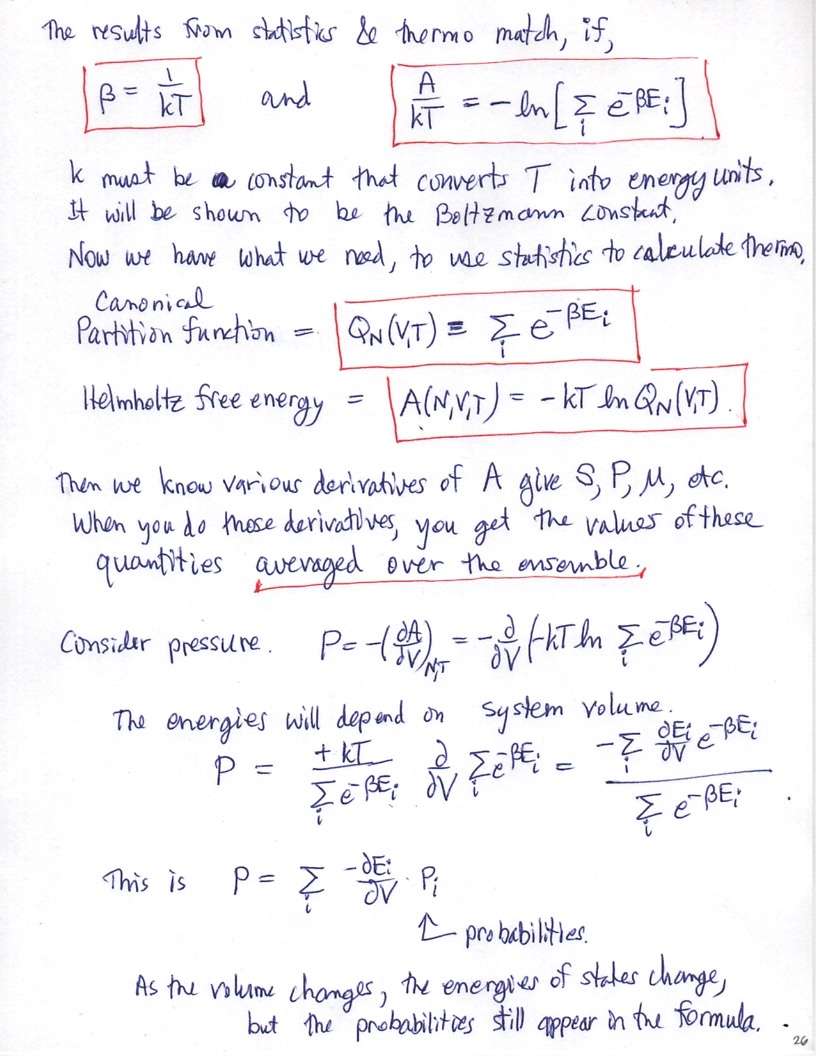 The results from statistics & thermo match, if,
β = 1/kT and A/kT = -ln[ Σ_i e^-βE_i ]
k must be a constant that converts T into energy units.
It will be shown to be the Boltzmann constant.
Now we have what we need, to use statistics to calculate thermo.
Canonical
Partition function = Q_N(V,T) ≡ Σ_i e^-βE_i
Helmholtz free energy = A(N,V,T) = -kT ln Q_N(V,T).
Then we know various derivatives of A give S, P, μ, etc.
When you do those derivatives, you get the values of these
quantities averaged over the ensemble.
Consider pressure. P = -(∂A/∂V)_N,T = -∂/∂V (-kT ln Σ_i e^-βE_i)
The energies will depend on system volume.
P = +kT / Σ_i e^-βE_i ∂/∂V Σ_i e^-βE_i = -Σ_i ∂E_i/∂V e^-βE_i / Σ_i e^-βE_i .
This is P = Σ_i -∂E_i/∂V · P_i
↑ probabilities.
As the volume changes, the energies of states change,
but the probabilities still appear in the formula.
26